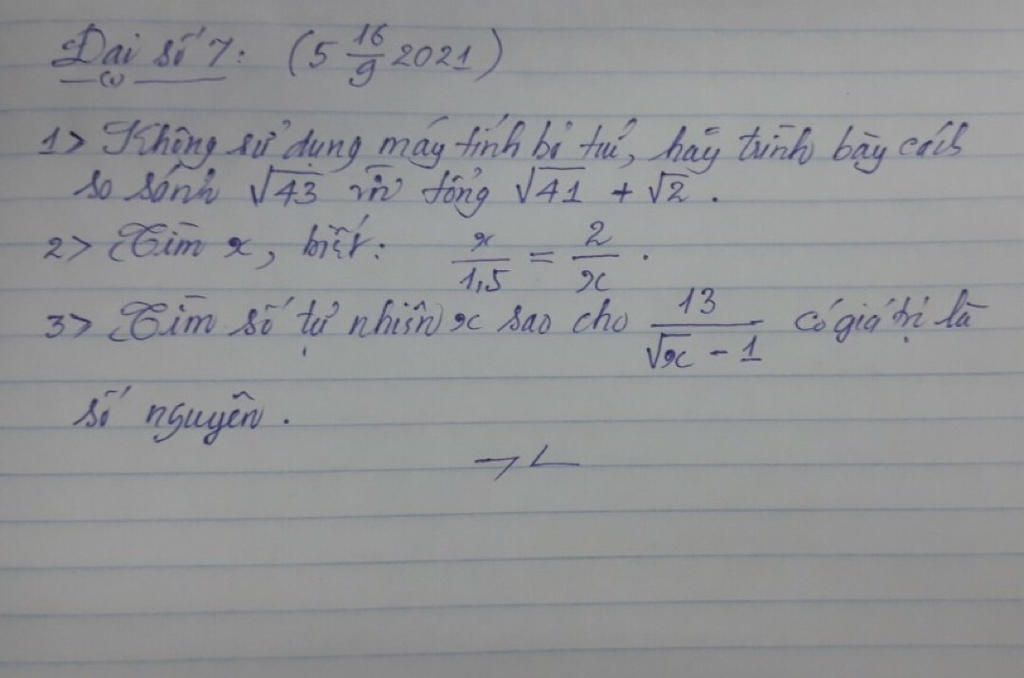 Đại số 7: (5 16/9 2021)
1> Không sử dụng máy tính bỏ túi, hãy trình bày cách
so sánh √43 với tổng √41 + √2.
2> Tìm x, biết: x/1,5 = 2/x.
3> Tìm số tự nhiên x sao cho 13/(√x - 1) có giá trị là
số nguyên.